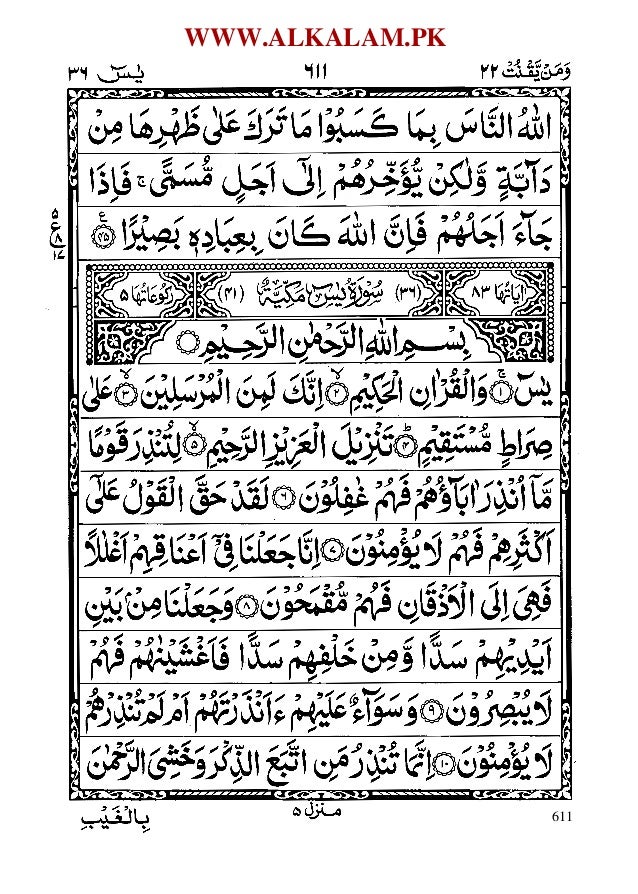 WWW.ALKALAM.PK
وَمَنْ يَّقْنُتْ ٢٢
٦١١
يٰسٓ ٣٦
اللّٰهُ النَّاسَ بِمَا كَسَبُوْا مَا تَرَكَ عَلٰى ظَهْرِهَا مِنْ
دَآبَّةٍ وَّلٰكِنْ يُّؤَخِّرُهُمْ اِلٰٓى اَجَلٍ مُّسَمًّى ۚ فَاِذَا
جَآءَ اَجَلُهُمْ فَاِنَّ اللّٰهَ كَانَ بِعِبَادِهٖ بَصِيْرًا ﴿۴۵﴾
۵ ع ٨ ١٤
اٰيَاتُهَا ٨٣ (٣٦) سُوْرَةُ يٰسٓ مَكِّيَّةٌ (٤١) رُكُوْعَاتُهَا ۵
بِسْمِ اللّٰهِ الرَّحْمٰنِ الرَّحِيْمِ
يٰسٓ ﴿١﴾ ۚ وَالْقُرْاٰنِ الْحَكِيْمِ ﴿٢﴾ ۙ اِنَّكَ لَمِنَ الْمُرْسَلِيْنَ ﴿٣﴾ ۙ عَلٰى
صِرَاطٍ مُّسْتَقِيْمٍ ﴿۴﴾ ؕ تَنْزِيْلَ الْعَزِيْزِ الرَّحِيْمِ ﴿۵﴾ ۙ لِتُنْذِرَ قَوْمًا
مَّاۤ اُنْذِرَ اٰبَآؤُهُمْ فَهُمْ غٰفِلُوْنَ ﴿۶﴾ لَقَدْ حَقَّ الْقَوْلُ عَلٰٓى
اَكْثَرِهِمْ فَهُمْ لَا يُؤْمِنُوْنَ ﴿٧﴾ اِنَّا جَعَلْنَا فِيْۤ اَعْنَاقِهِمْ اَغْلٰلًا
فَهِيَ اِلَى الْاَذْقَانِ فَهُمْ مُّقْمَحُوْنَ ﴿٨﴾ وَجَعَلْنَا مِنْۢ بَيْنِ
اَيْدِيْهِمْ سَدًّا وَّمِنْ خَلْفِهِمْ سَدًّا فَاَغْشَيْنٰهُمْ فَهُمْ
لَا يُبْصِرُوْنَ ﴿٩﴾ وَسَوَآءٌ عَلَيْهِمْ ءَاَنْذَرْتَهُمْ اَمْ لَمْ تُنْذِرْهُمْ
لَا يُؤْمِنُوْنَ ﴿١٠﴾ اِنَّمَا تُنْذِرُ مَنِ اتَّبَعَ الذِّكْرَ وَخَشِيَ الرَّحْمٰنَ
بِالْغَيْبِ
منزل ۵
611